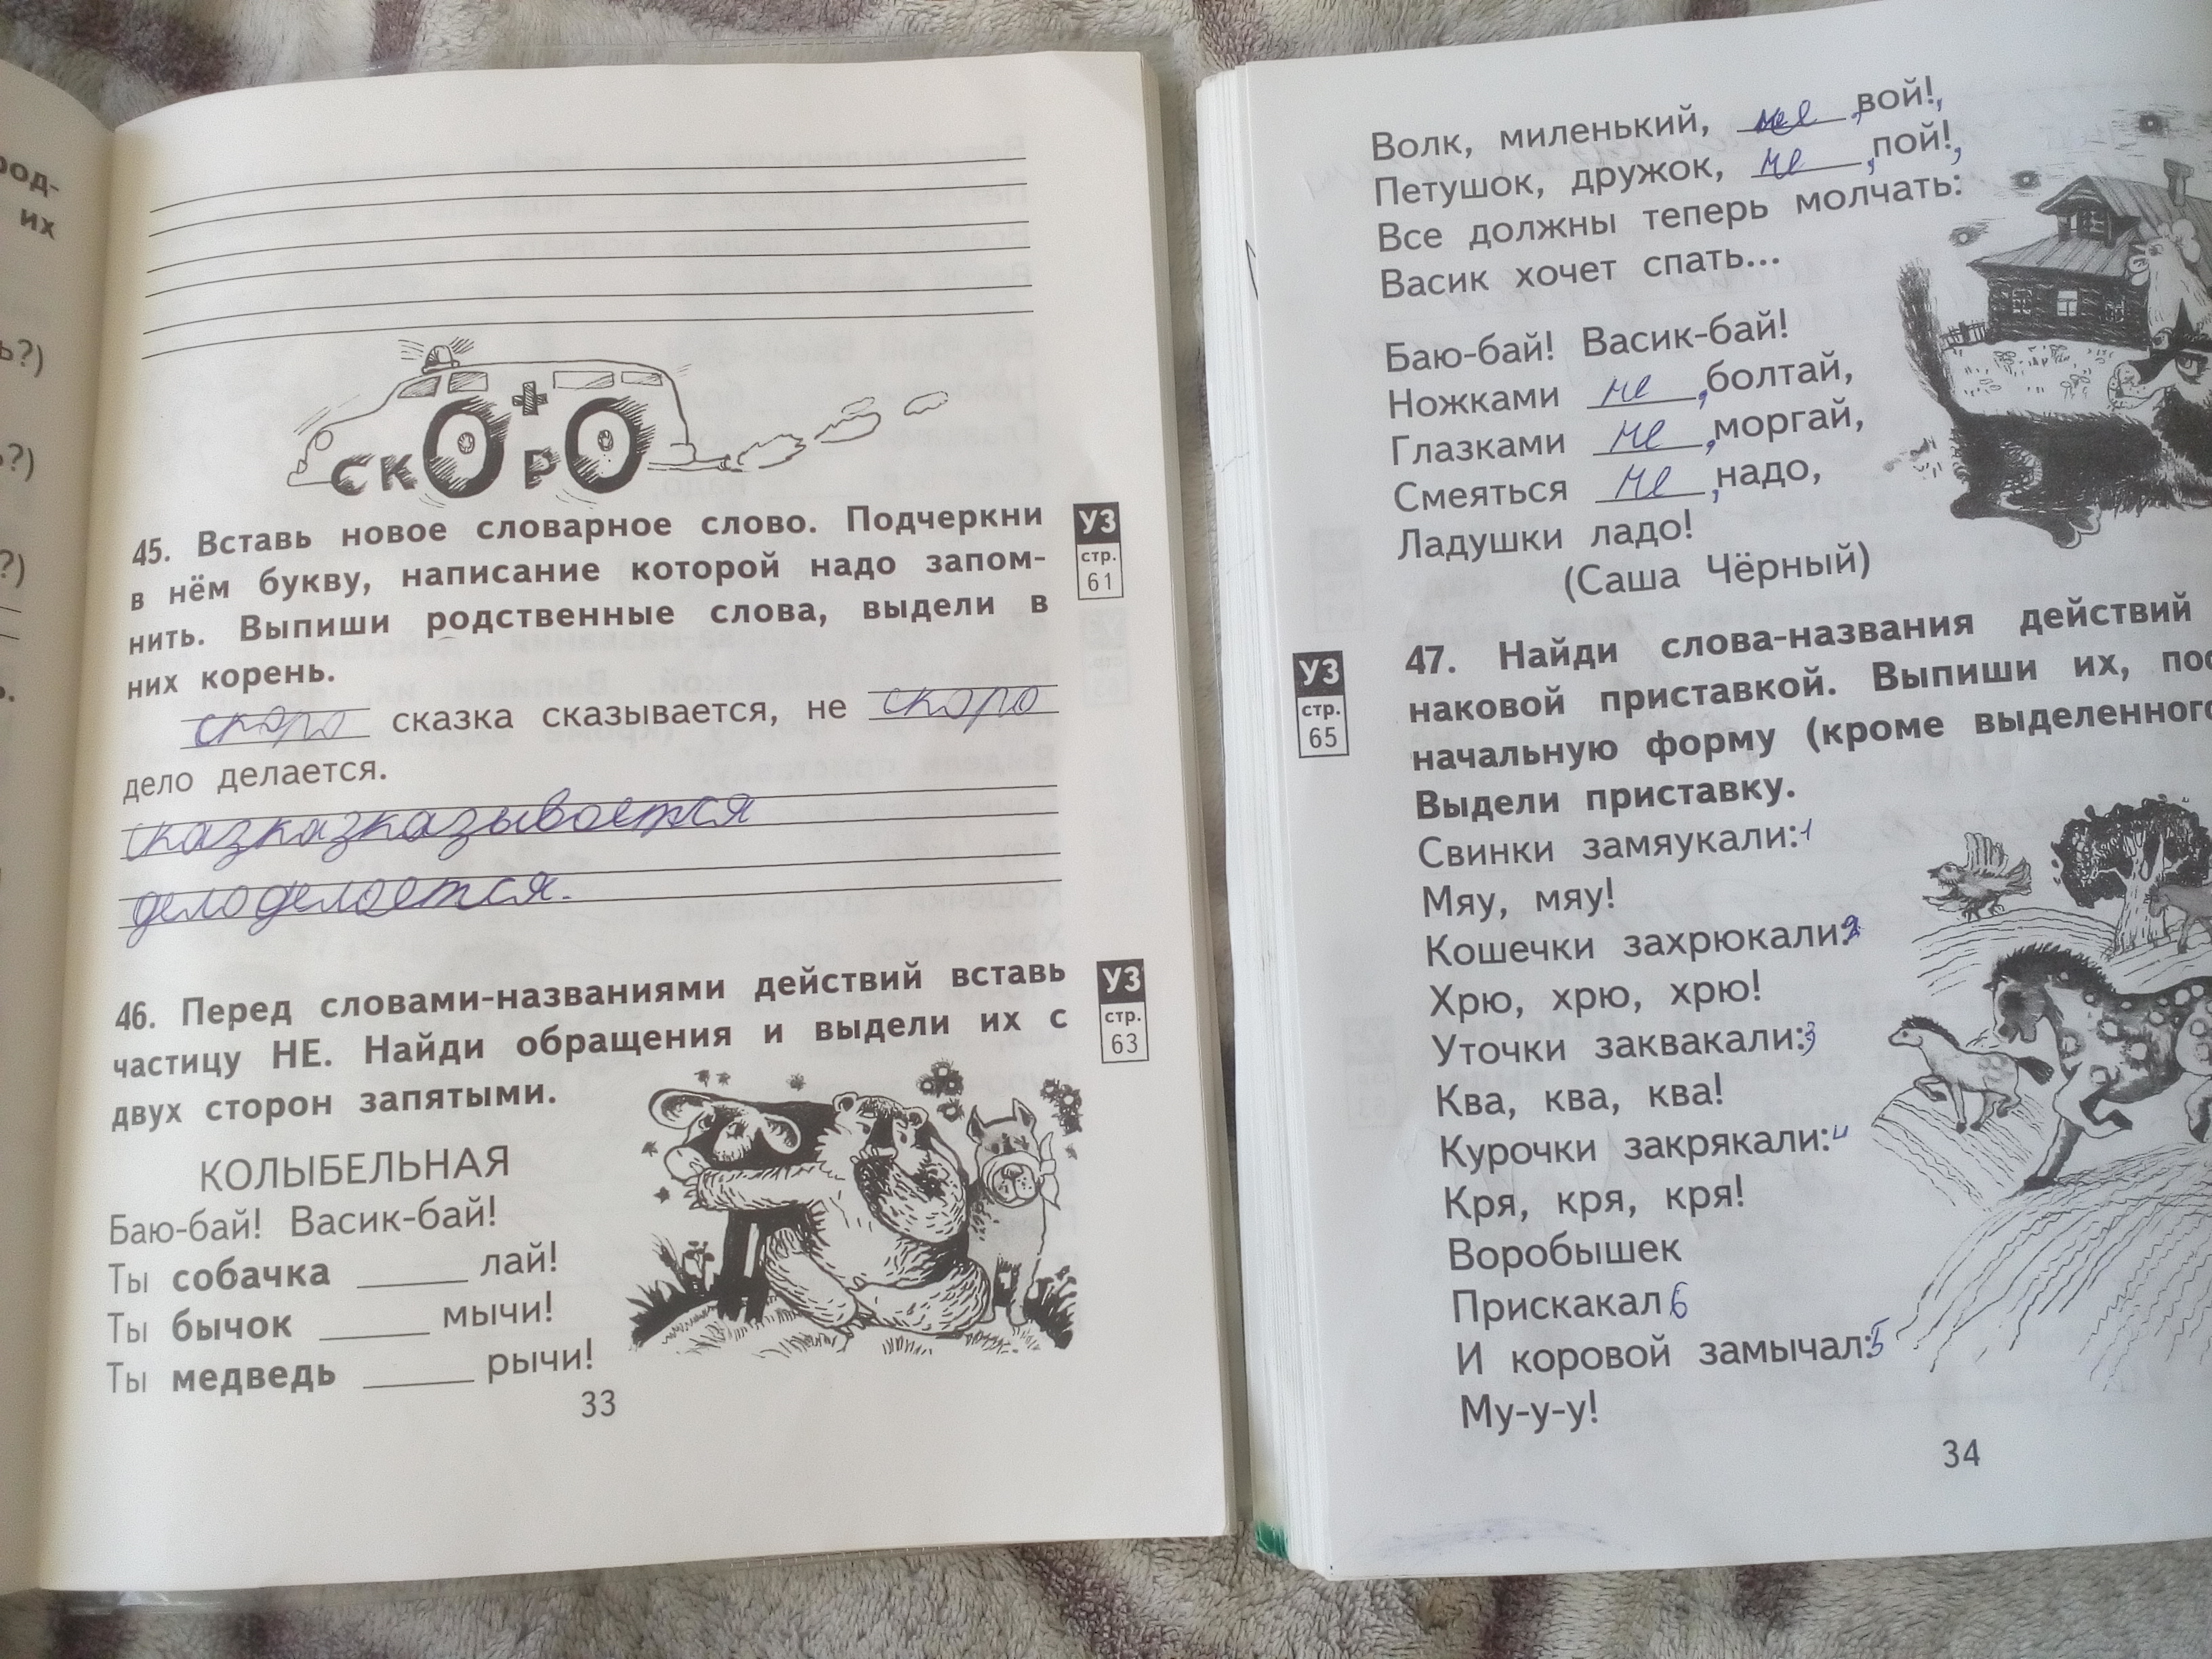 род-
их
ь?)
ь?)
?)
ь.
СКОРО
45. Вставь новое словарное слово. Подчеркни
в нём букву, написание которой надо запом-
нить. Выпиши родственные слова, выдели в
них корень.
УЗ
стр.
61
скоро сказка сказывается, не скоро
дело делается.
дело делается.
46. Перед словами-названиями действий вставь
частицу НЕ. Найди обращения и выдели их с
двух сторон запятыми.
УЗ
стр.
63
КОЛЫБЕЛЬНАЯ
Баю-бай! Васик-бай!
Ты собачка ______ лай!
Ты бычок ______ мычи!
Ты медведь ______ рычи!
33
Волк, миленький, не, вой!,
Петушок, дружок, не, пой!,
Все должны теперь молчать:
Васик хочет спать...
Баю-бай! Васик-бай!
Ножками не, болтай,
Глазками не, моргай,
Смеяться не, надо,
Ладушки ладо!
(Саша Чёрный)
УЗ
стр.
65
47. Найди слова-названия действий
наковой приставкой. Выпиши их, пос
начальную форму (кроме выделенного
Выдели приставку.
Свинки замяукали: 1
Мяу, мяу!
Кошечки захрюкали: 2
Хрю, хрю, хрю!
Уточки заквакали: 3
Ква, ква, ква!
Курочки закрякали: 4
Кря, кря, кря!
Воробышек
Прискакал 6
И коровой замычал: 5
Му-у-у!
34